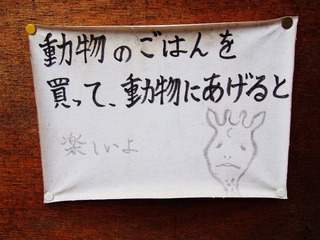 動物のごはんを
買って、動物にあげると
楽しいよ